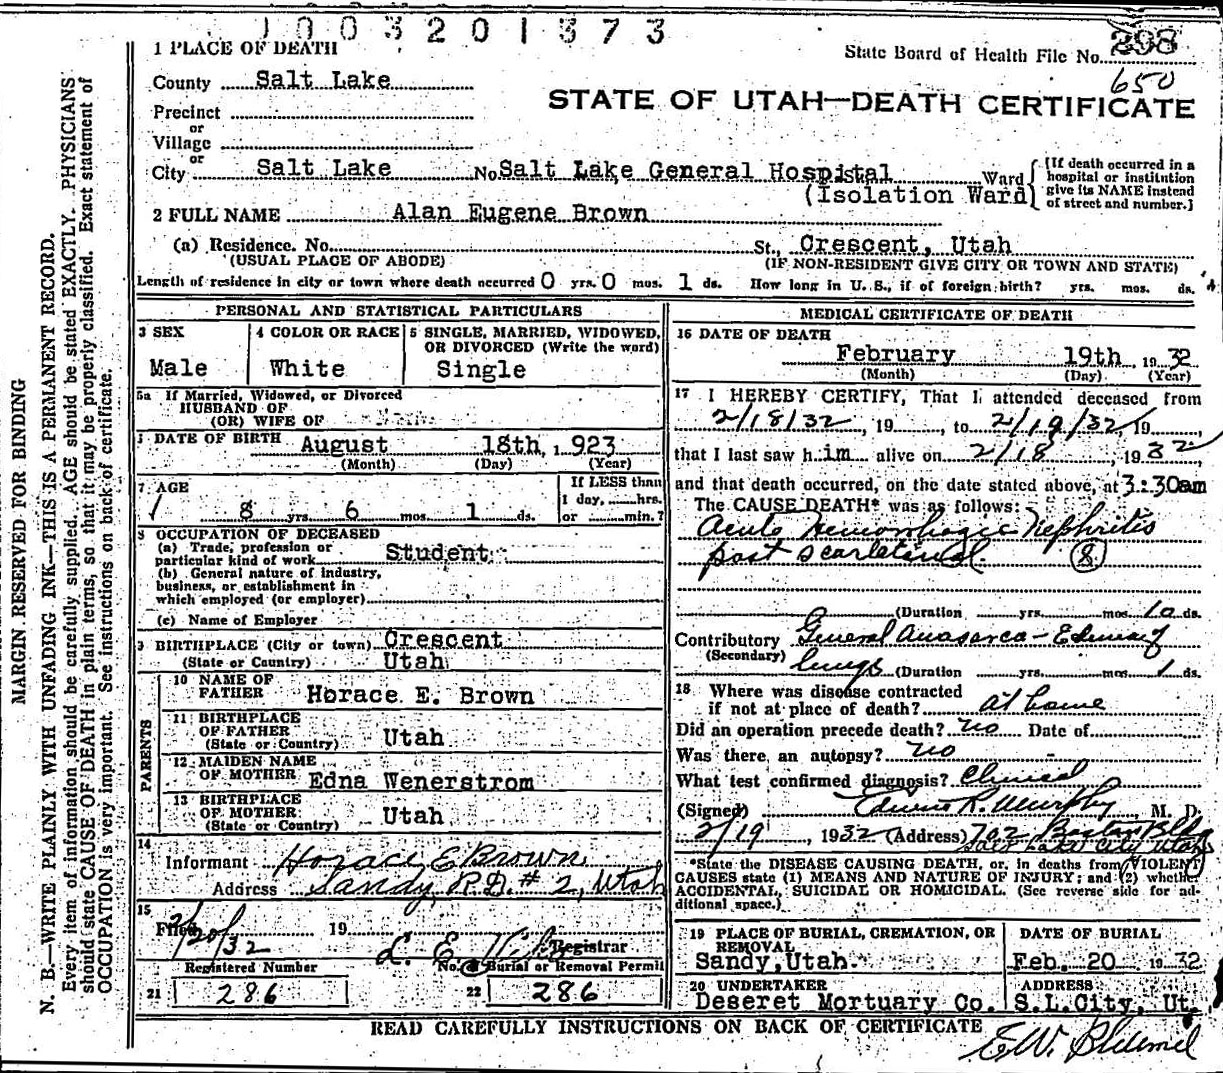 1003201373
1 PLACE OF DEATH
State Board of Health File No. 298
650
County Salt Lake
STATE OF UTAH—DEATH CERTIFICATE
Precinct
or
Village
or
City Salt Lake No. Salt Lake General Hospistal Ward
(Isolation Ward)
[If death occurred in a hospital or institution give its NAME instead of street and number.]
2 FULL NAME Alan Eugene Brown
(a) Residence. No. St., Crescent, Utah
(USUAL PLACE OF ABODE) (IF NON-RESIDENT GIVE CITY OR TOWN AND STATE)
Length of residence in city or town where death occurred 0 yrs. 0 mos. 1 ds. How long in U. S., if of foreign birth? yrs. mos. ds.
PERSONAL AND STATISTICAL PARTICULARS
3 SEX
Male
4 COLOR OR RACE
White
5 SINGLE, MARRIED, WIDOWED,
OR DIVORCED (Write the word)
Single
5a If Married, Widowed, or Divorced
HUSBAND OF
(OR) WIFE OF
DATE OF BIRTH August 18th, 1923
(Month) (Day) (Year)
7 AGE
8 yrs 6 mos. 1 ds.
If LESS than
1 day, hrs.
or min.?
8 OCCUPATION OF DECEASED
(a) Trade, profession or
particular kind of work Student
(b) General nature of industry,
business, or establishment in
which employed (or employer)
(c) Name of Employer
9 BIRTHPLACE (City or town) Crescent
(State or Country) Utah
PARENTS
10 NAME OF
FATHER Horace E. Brown
11 BIRTHPLACE
OF FATHER
(State or Country) Utah
12 MAIDEN NAME
OF MOTHER Edna Wenerstrom
13 BIRTHPLACE
OF MOTHER
(State or Country) Utah
14
Informant Horace E Brown
Address Sandy, R.D. # 2, Utah
15
Filed 2/20/32 19
L. E. Registrar
Registered Number No. of Burial or Removal Permit
21 286 22 286
MEDICAL CERTIFICATE OF DEATH
16 DATE OF DEATH
February 19th, 1932
(Month) (Day) (Year)
17 I HEREBY CERTIFY, That I attended deceased from
2/18/32, 19, to 2/19/32, 19,
that I last saw him alive on 2/18, 1932
and that death occurred, on the date stated above, at 3:30am
The CAUSE DEATH* was as follows:
Acute Hemorrhagic Nephritis
post scarletinal (8)
(Duration yrs. mos. 10 ds.
Contributory General Anasarca - Edema of
(Secondary) lungs (Duration yrs. mos. 1 ds.
18 Where was disease contracted
if not at place of death? at home
Did an operation precede death? no Date of
Was there an autopsy? no
What test confirmed diagnosis? Clinical
(Signed) Edwin R. Murphy M. D.
2/19, 1932 (Address) 702 Boston Bldg
Salt Lake City Utah
*State the DISEASE CAUSING DEATH, or, in deaths from VIOLENT
CAUSES state (1) MEANS AND NATURE OF INJURY; and (2) whether
ACCIDENTAL, SUICIDAL OR HOMICIDAL. (See reverse side for ad-
ditional space.)
19 PLACE OF BURIAL, CREMATION, OR
REMOVAL
Sandy, Utah
DATE OF BURIAL
Feb. 20 1932
20 UNDERTAKER
Deseret Mortuary Co.
ADDRESS
S.L.City, Ut.
READ CAREFULLY INSTRUCTIONS ON BACK OF CERTIFICATE
E.W.
MARGIN RESERVED FOR BINDING
N. B.—WRITE PLAINLY WITH UNFADING INK—THIS IS A PERMANENT RECORD.
Every item of information should be carefully supplied. AGE should be stated EXACTLY. PHYSICIANS
should state CAUSE OF DEATH in plain terms, so that it may be properly classified. Exact statement of
OCCUPATION is very important. See instructions on back of certificate.